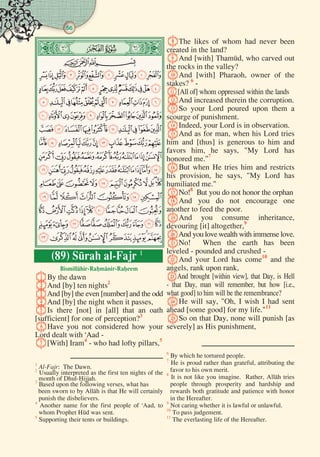 66
سُورَةُ الفَجْرِ
وَالْفَجْرِ ١ وَلَيَالٍ عَشْرٍ ٢ وَالشَّفْعِ وَالْوَتْرِ ٣ وَاللَّيْلِ إِذَا يَسْرِ
٤ هَلْ فِي ذَٰلِكَ قَسَمٌ لِذِي حِجْرٍ ٥ أَلَمْ تَرَ كَيْفَ فَعَلَ رَبُّكَ بِعَادٍ
٦ إِرَمَ ذَاتِ الْعِمَادِ ٧ الَّتِي لَمْ يُخْلَقْ مِثْلُهَا فِي الْبِلَادِ
٨ وَثَمُودَ الَّذِينَ جَابُوا الصَّخْرَ بِالْوَادِ ٩ وَفِرْعَوْنَ ذِي الْأَوْتَادِ
١٠ الَّذِينَ طَغَوْا فِي الْبِلَادِ ١١ فَأَكْثَرُوا فِيهَا الْفَسَادَ ١٢ فَصَبَّ
عَلَيْهِمْ رَبُّكَ سَوْطَ عَذَابٍ ١٣ إِنَّ رَبَّكَ لَبِالْمِرْصَادِ ١٤ فَأَمَّا
الْإِنْسَانُ إِذَا مَا ابْتَلَاهُ رَبُّهُ فَأَكْرَمَهُ وَنَعَّمَهُ فَيَقُولُ رَبِّي أَكْرَمَنِ
١٥ وَأَمَّا إِذَا مَا ابْتَلَاهُ فَقَدَرَ عَلَيْهِ رِزْقَهُ فَيَقُولُ رَبِّي أَهَانَنِ ١٦
كَلَّا بَلْ لَا تُكْرِمُونَ الْيَتِيمَ ١٧ وَلَا تَحَاضُّونَ عَلَىٰ طَعَامِ
الْمِسْكِينِ ١٨ وَتَأْكُلُونَ التُّرَاثَ أَكْلًا لَمًّا ١٩ وَتُحِبُّونَ
الْمَالَ حُبًّا جَمًّا ٢٠ كَلَّا إِذَا دُكَّتِ الْأَرْضُ دَكًّا دَكًّا
٢١ وَجَاءَ رَبُّكَ وَالْمَلَكُ صَفًّا صَفًّا ٢٢ وَجِيءَ
يَوْمَئِذٍ بِجَهَنَّمَ يَوْمَئِذٍ يَتَذَكَّرُ الْإِنْسَانُ وَأَنَّىٰ لَهُ الذِّكْرَىٰ ٢٣
(89) Sūrah al-Fajr 1
Bismillāhir-Raḥmānir-Raḥeem
1 By the dawn
2 And [by] ten nights2
3 And [by] the even [number] and the odd
4 And [by] the night when it passes,
5 Is there [not] in [all] that an oath
[sufficient] for one of perception?3
6 Have you not considered how your
Lord dealt with ‘Aad -
7 [With] Iram4 - who had lofty pillars,5
1 Al-Fajr: The Dawn.
2 Usually interpreted as the first ten nights of the
month of Dhul-Ḥijjah.
3 Based upon the following verses, what has
been sworn to by Allāh is that He will certainly
punish the disbelievers.
4 Another name for the first people of ‘Aad, to
whom Prophet Hūd was sent.
5 Supporting their tents or buildings.
8 The likes of whom had never been
created in the land?
9 And [with] Thamūd, who carved out
the rocks in the valley?
10 And [with] Pharaoh, owner of the
stakes? 6 -
11 [All of] whom oppressed within the lands
12 And increased therein the corruption.
13 So your Lord poured upon them a
scourge of punishment.
14 Indeed, your Lord is in observation.
15 And as for man, when his Lord tries
him and [thus] is generous to him and
favors him, he says, "My Lord has
honored me."7
16 But when He tries him and restricts
his provision, he says, "My Lord has
humiliated me."
17 No!8 But you do not honor the orphan
18 And you do not encourage one
another to feed the poor.
19 And you consume inheritance,
devouring [it] altogether,9
20 And you love wealth with immense love.
21 No! When the earth has been
leveled - pounded and crushed -
22 And your Lord has come10 and the
angels, rank upon rank,
23 And brought [within view], that Day, is Hell
- that Day, man will remember, but how [i.e.,
what good] to him will be the remembrance?
24 He will say, "Oh, I wish I had sent
ahead [some good] for my life."11
25 So on that Day, none will punish [as
severely] as His punishment,
6 By which he tortured people.
7 He is proud rather than grateful, attributing the
favor to his own merit.
8 It is not like you imagine. Rather, Allāh tries
people through prosperity and hardship and
rewards both gratitude and patience with honor
in the Hereafter.
9 Not caring whether it is lawful or unlawful.
10 To pass judgement.
11 The everlasting life of the Hereafter.